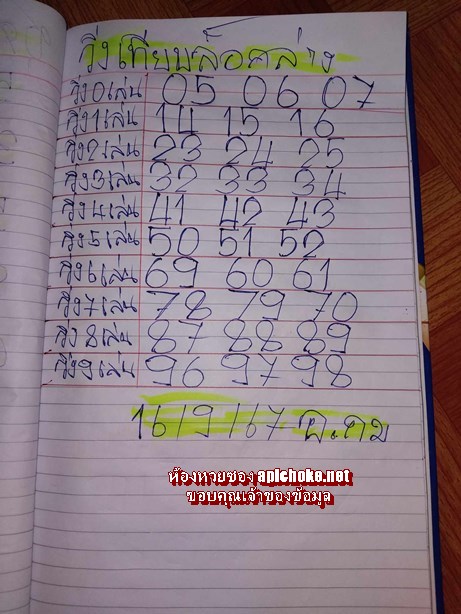 วิ่งเทียบล็อคล่าง
วิ่ง0เล่น 05 06 07
วิ่ง1เล่น 14 15 16
วิ่ง2เล่น 23 24 25
วิ่ง3เล่น 32 33 34
วิ่ง4เล่น 41 42 43
วิ่ง5เล่น 50 51 52
วิ่ง6เล่น 69 60 61
วิ่ง7เล่น 78 79 70
วิ่ง8เล่น 87 88 89
วิ่ง9เล่น 96 97 98
16/9/67 อ.คม
ห้องหวยซอง apichoke.net
ขอบคุณเจ้าของข้อมูล